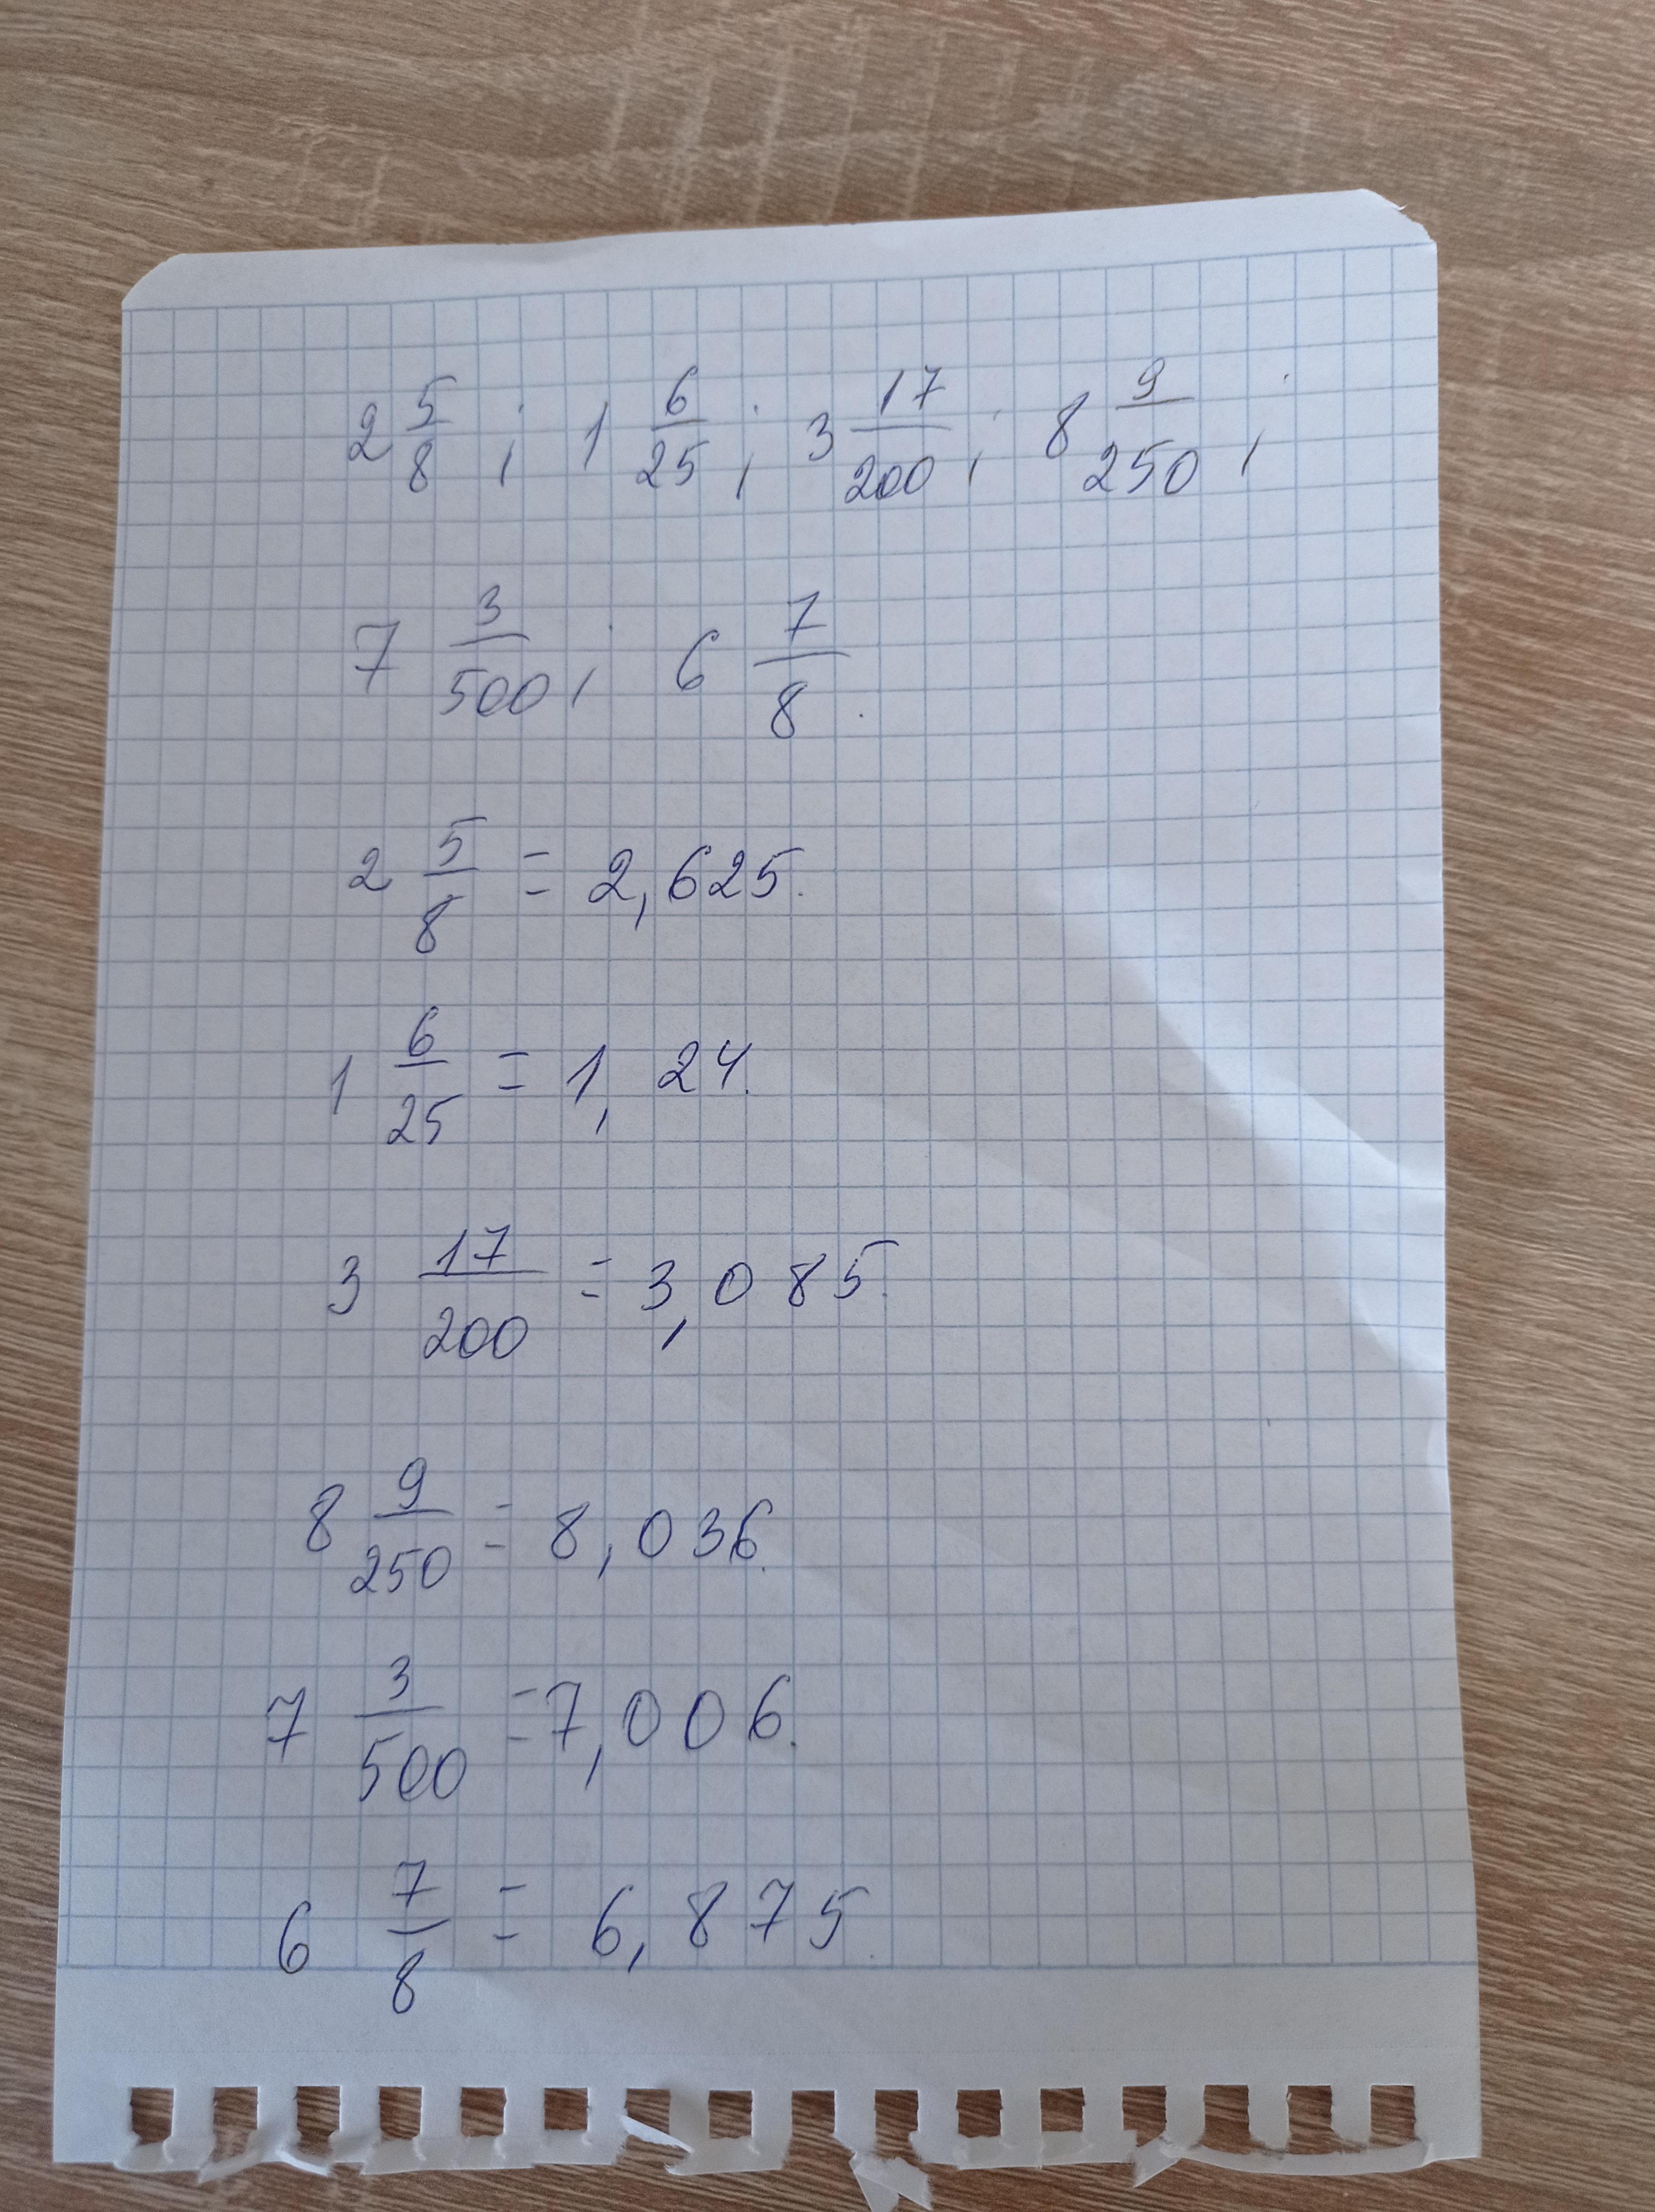 2 5/8 ; 1 6/25 ; 3 17/200 ; 8 9/250 ;
7 3/500 ; 6 7/8 .
2 5/8 = 2,625.
1 6/25 = 1,24.
3 17/200 = 3,085.
8 9/250 = 8,036.
7 3/500 = 7,006.
6 7/8 = 6,875.